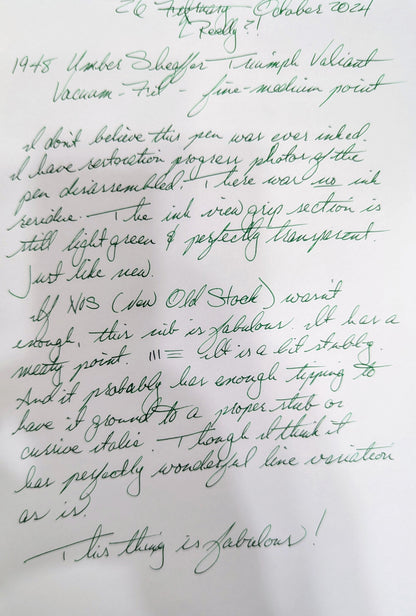 26 February October 2024
(Really?!
1948 Umber Sheaffer Triumph Valiant
Vacuum-Fil - fine-medium point
I don't believe this pen was ever inked.
I have restoration progress photos of the
pen disassembled. There was no ink
residue. The ink view grip section is
still light green & perfectly transparent.
Just like new.
If NOS (New Old Stock) wasn't
enough, this nib is fabulous. It has a
meaty point It is a bit stubby.
And it probably has enough tipping to
have it ground to a proper stub or
cursive italic. Though I think it
has perfectly wonderful line variation
as is.
This thing is fabulous!